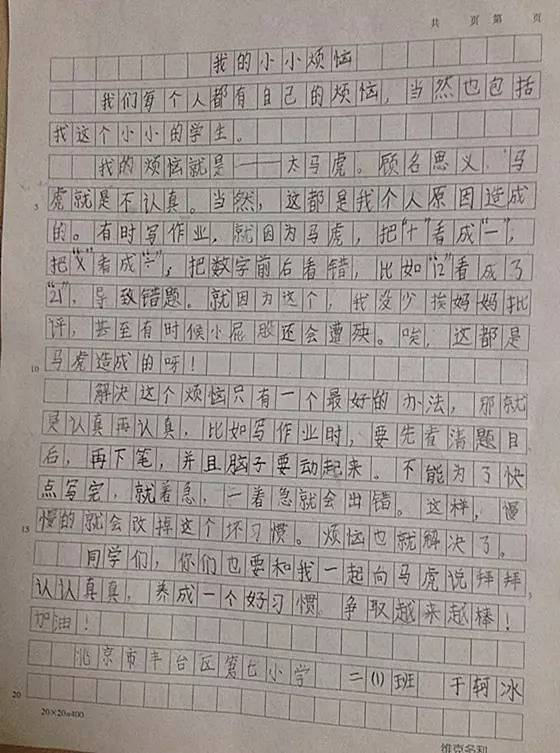 共 页 第 页
我的小小烦恼
我们每个人都有自己的烦恼，当然也包括
我这个小小的学生。
我的烦恼就是——太马虎。顾名思义，马
虎就是不认真。当然，这都是我个人原因造成
5
的。有时写作业，就因为马虎，把“+”看成“一”，
把“×”看成“÷”，把数字前后看错，比如“12”看成了
“21”，导致错题。就因为这个，我没少挨妈妈批
评，甚至有时候小屁股还会遭殃。唉，这都是
马虎造成的呀！
10
解决这个烦恼只有一个最好的办法，那就
是认真再认真，比如写作业时，要先看清题目
后，再下笔，并且脑子要动起来。不能为了快
点写完，就着急，一着急就会出错。这样，慢
慢的就会改掉这个坏习惯。烦恼也就解决了。
15
同学们，你们也要和我一起向马虎说拜拜，
认认真真，养成一个好习惯。争取越来越棒！
加油！
北京市丰台区第七小学 二(1)班 于轲冰
20
20×20=400
维克多利